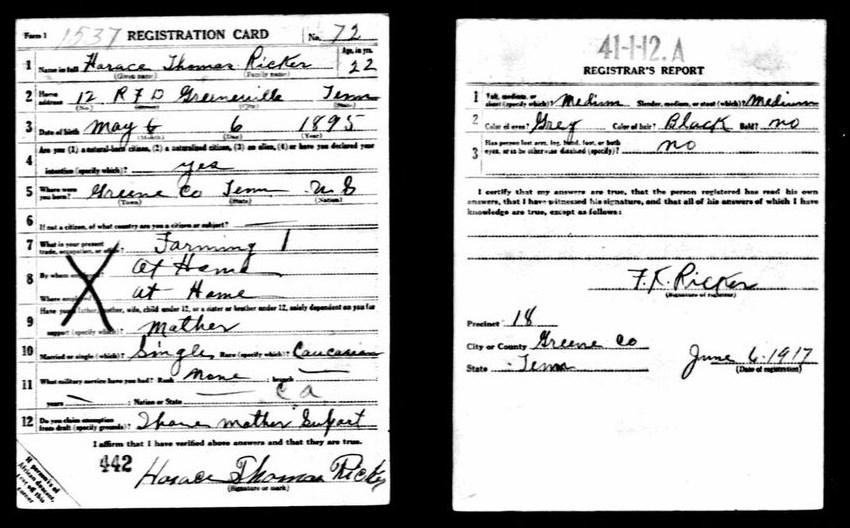 Form 1 1537 REGISTRATION CARD No. 72
1 Name in full Horace Thomas Ricker Age, in yrs. 22
(Given name) (Family name)
2 Home address 12 R F D Greeneville Tenn
(No.) (City) (State)
3 Date of birth May 6 6 1895
(Month) (Day) (Year)
4 Are you (1) a natural-born citizen, (2) a naturalized citizen, (3) an alien, (4) or have you declared your
intention (specify which)? yes
5 Where were you born? Greene Co Tenn U S
(Town) (State) (Nation)
6 If not a citizen, of what country are you a citizen or subject?
7 What is your present trade, occupation, or office? Farming
8 By whom employed? At Home
Where employed? at Home
9 Have you a father, mother, wife, child under 12, or a sister or brother under 12, solely dependent on you for
support (specify which)? Mother
10 Married or single (which)? Single Race (specify which)? Caucasian
11 What military service have you had? Rank None ; branch
years ; Nation or State
12 Do you claim exemption from draft (specify grounds)? mother
I affirm that I have verified above answers and that they are true.
442
Horace Thomas Ricker
(Signature or mark)
If person is of African descent, tear off this corner
41-1-12. A
REGISTRAR'S REPORT
1 Tall, medium, or short (specify which)? Medium Slender, medium, or stout (which)? Medium
2 Color of eyes? Grey Color of hair? Black Bald? no
3 Has person lost arm, leg, hand, foot, or both eyes, or is he otherwise disabled (specify)? no
I certify that my answers are true, that the person registered has read his own
answers, that I have witnessed his signature, and that all of his answers of which I have
knowledge are true, except as follows:
F. K. Ricker
(Signature of registrar)
Precinct 18
City or County Greene Co
State Tenn June 6 - 1917
(Date of registration)